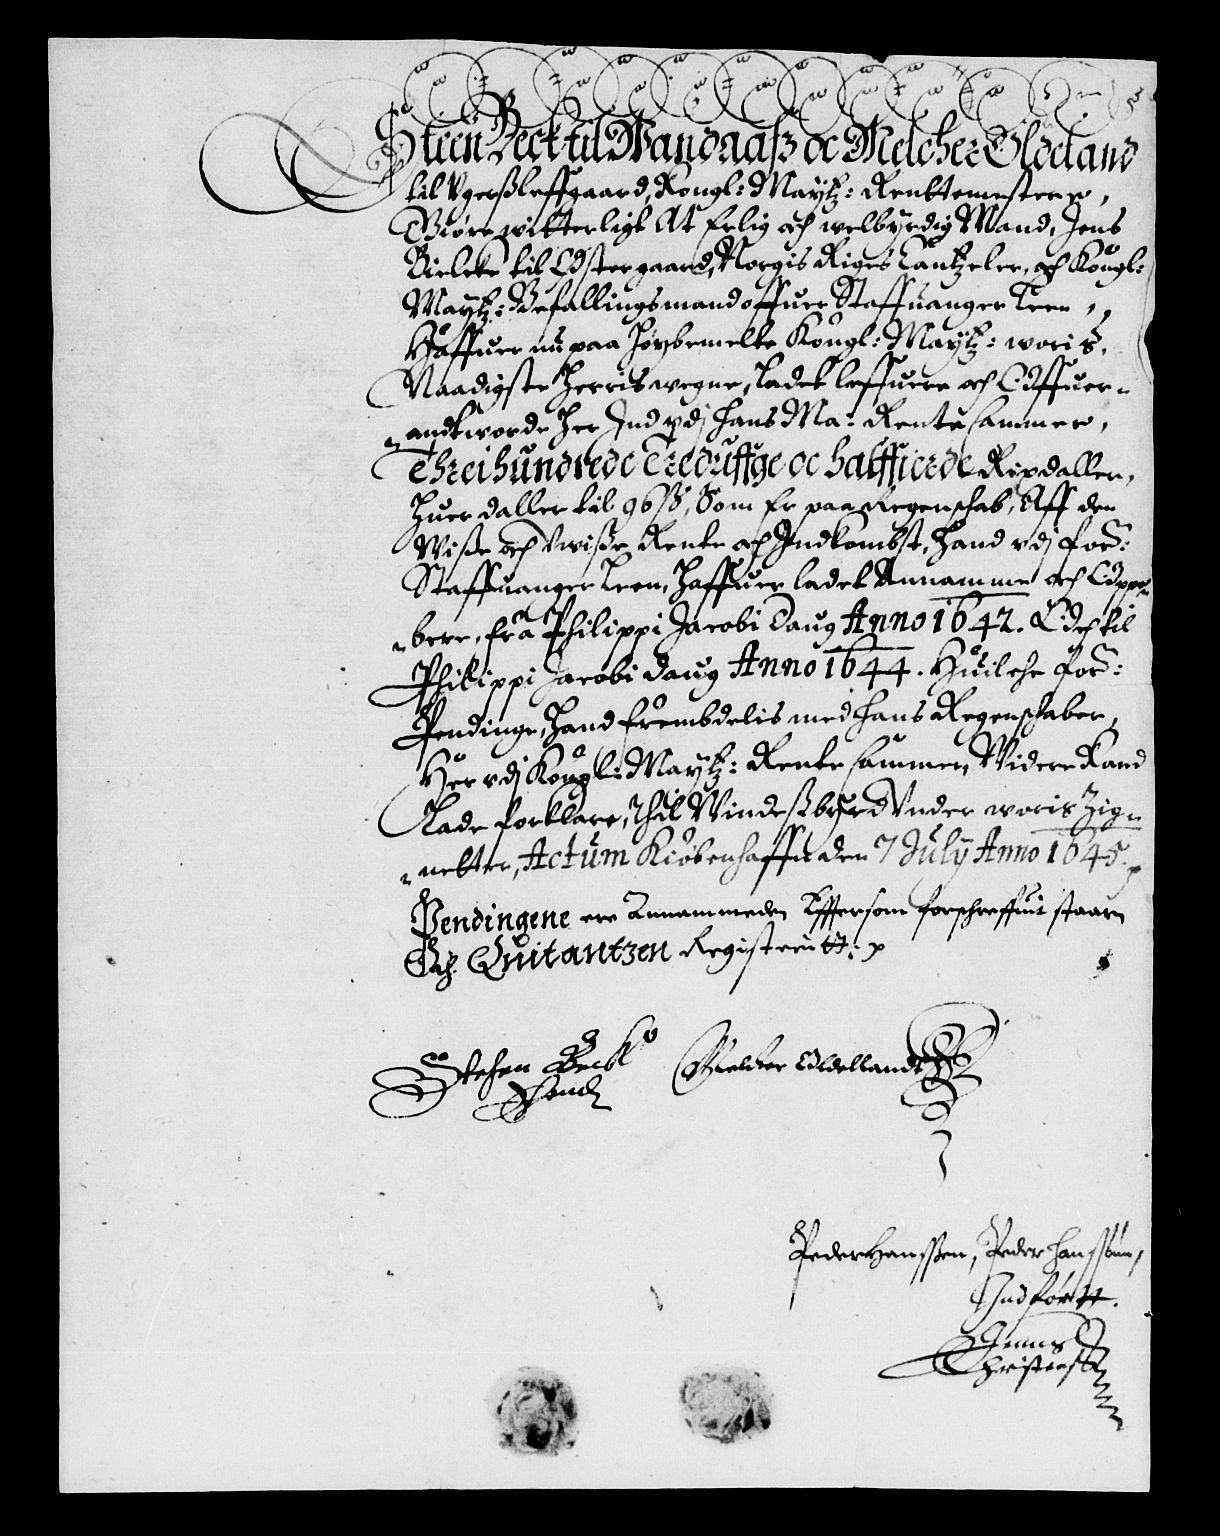 Steen Beck til Wandaaß oc Melcher Oldeland
til Vgerßleffgaard, Kongl: Maytz: Rentemestere,
Giøre witterligt At Erlig och welbyrdig Mand, Jens
Bielcke til Østergaard, Norgis Riges Cantzeler, och Kongl:
Maytz: Befallingsmand offuer Staffuanger Leen,
Haffuer nu paa høybemelte Kongl: Maytz: woris,
Naadigste herris wegne, ladet leffuere och Offuer-
-andtworde her Ind vdj hans Ma: Rente Cammer,
Threi hundrede Treduffge oc halffierde Rixdaller,
huer daller til 96 ß, Som Er paa Regenschab, Aff den
Wiße och Vwiße Rente och Indkombst, hand vdj for:
Staffuanger Leen, haffuer ladet Annamme och Oppe-
-bere, fra Philippi Jacobi Daug Anno 1642. Och til
Philippi Jacobi daug Anno 1644. Huilche for:
Pendinge, hand frembdelis med hans Regenschaber,
Her vdj Kongl: Maytz: Rente Cammer, Widere Kand
Lade forklare, Thil Windeßbyrd Vnder woris Zig-
-netter, Actum Kiøbenhaffn den 7 July Anno 1645.
Pendingene ere Annammeden Efftersom forschreffuit staar
Och Quitantzen Registeritt:
Stehen Beck
Ehgendt
Melcher Oldellandt
Peder Hanssen, Peder Hanssønn,
Indførtt.
Jenns
Christens